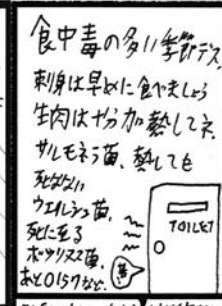 食中毒の多い季節デス
刺身は早めに食べましょう
生肉は十分加熱してネ
サルモネラ菌、熱しても
死なない
ウエルシュ菌、
死に至る
ボツリヌス菌、
あとO157など。
TOILET